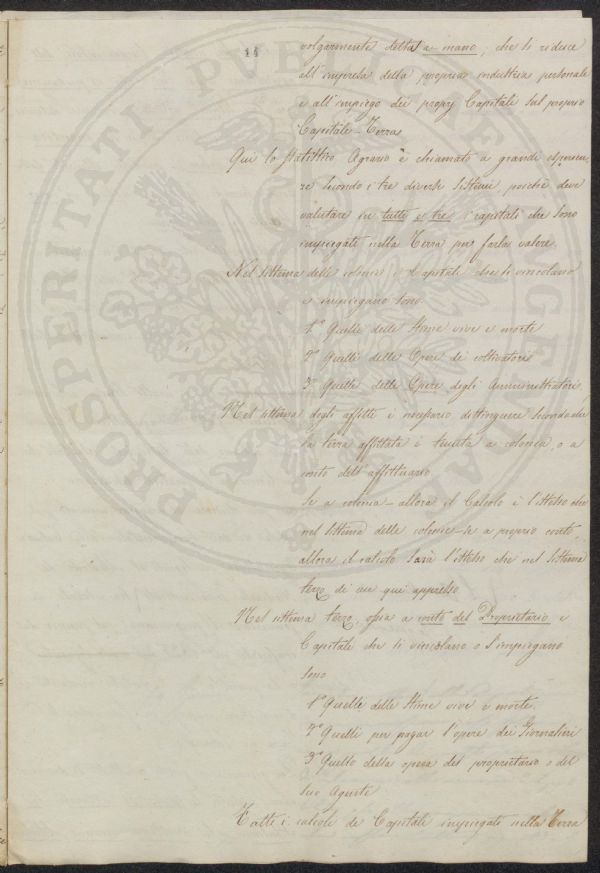 14
volgarmente detta a mano, che si riduce
all'impresa della propria industria personale
e all'impiego dei propri Capitale sul proprio
Capitale-Terra
Qui lo statistico Agrario è chiamato a grandi operazio
ni secondo i tre diversi sistemi, poichè deve
valutare in tutti e tre i capitali che sono
impiegati nella Terra per farla valere.
Nel sistema delle colonie i Capitali che si vincolano
e impiegano sono.
1.º Quelle delle Stime vive e morte
2º Quelli delle Opere dei coltivatori
3º Quelli delle Opere degli Amministratori,
Nel sistema degli affitti è necessario distinguere secondo che
la terra affittata è tenuta a colonia, o a
conto dell'affittuario
Se a colonia - allora il Calcolo è l'istesso che
nel sistema delle colonie - se a proprio conto,
allora il calcolo sarà l'istesso che nel sistema
terzo, di cui qui appresso
Nel sistema terzo, ossia a conto del Proprietario i
Capitali che si vincolano o s'impiegano
sono
1º Quelli delle Stime vive e morte.
2º Quelli per pagar l'opera dei Giornalieri
3º Quello della opera del proprietario o del
suo Agente
Fatti i calcoli de Capitali impiegati nella Terra
PROSPERITATI PVBLICAE AVGENDAE